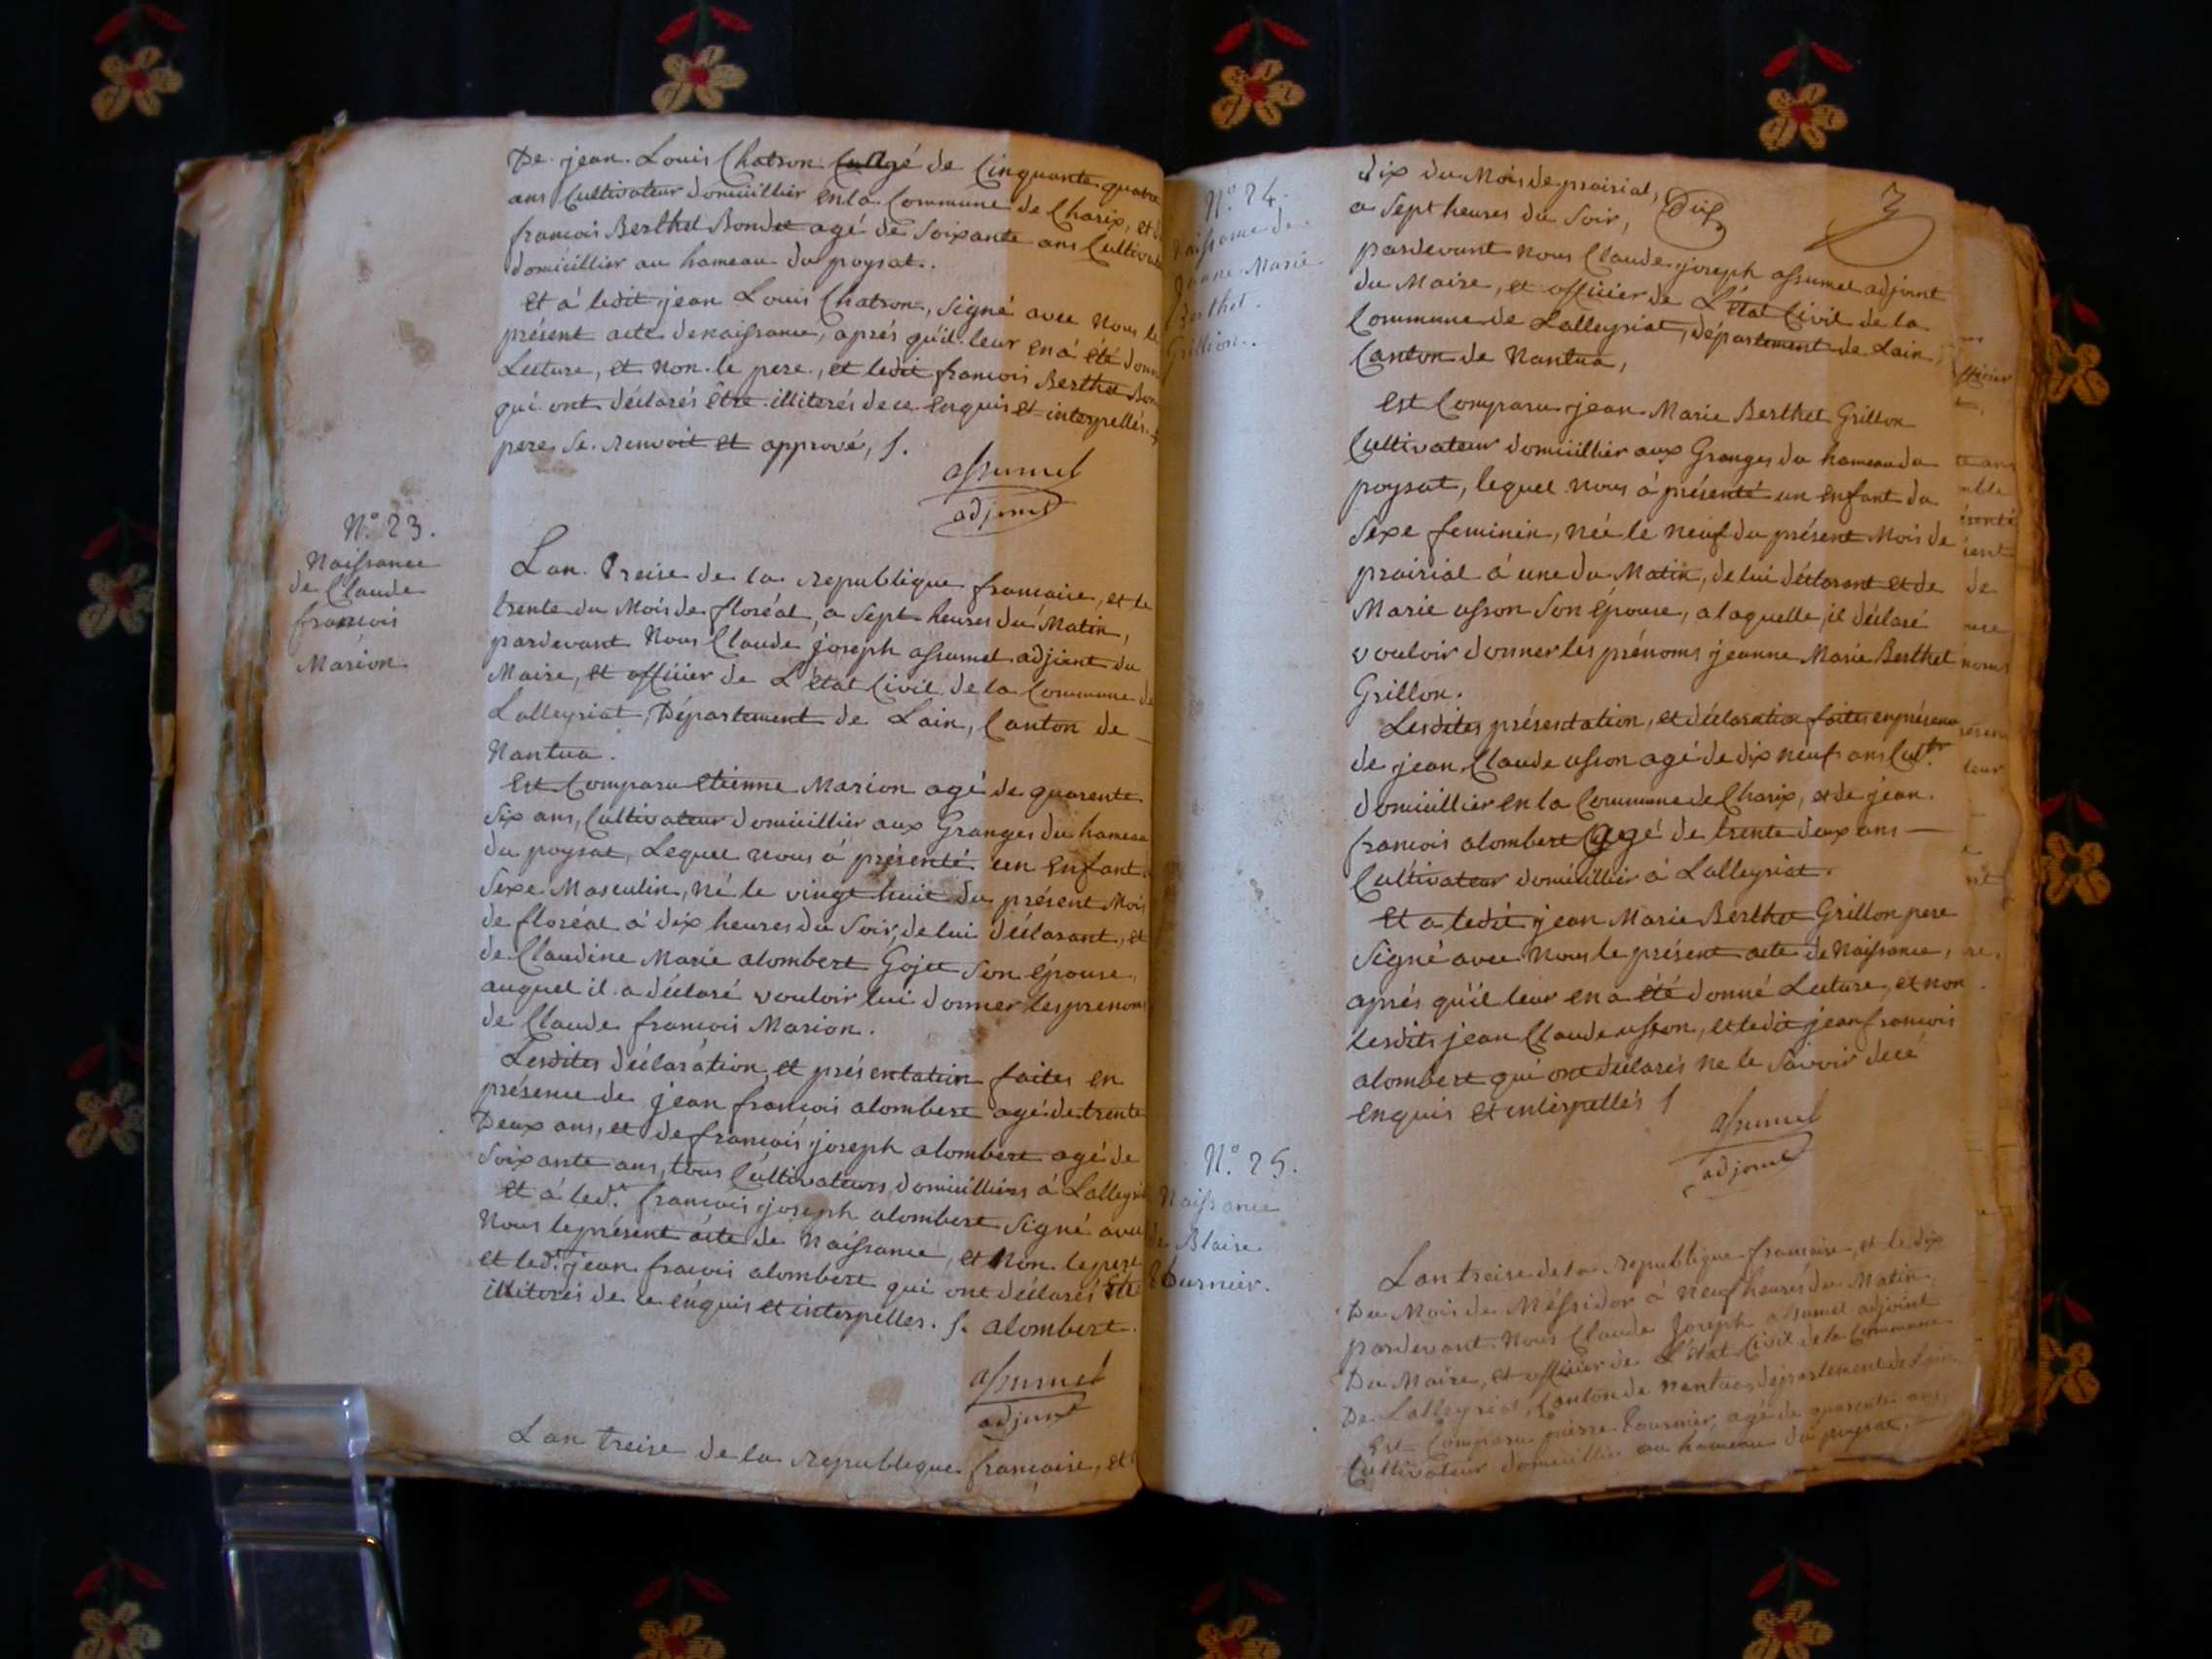 De jean Louis Chatron agé de Cinquante quatre
ans Cultivateur domicillier en la Commune de Charix, et de
francois Berthet Bondet agé de Soixante ans Cultivate
domicillier au hameau du poysat.
Et à ledit jean Louis Chatron, signé avec Nous le
présent acte de naissance, aprés qu'il leur en à été donn
Lecture, et non le pere, et ledit francois Berthet Bon
qui ont déclarés être illiterés de ce enquis et interpellés.
pere se. renvoit et apprové, /.
assumel
adjoint
N.° 23.
Naissance
de Claude
francois
Marion
Lan treise de la republique francaise, et le
trente du Mois de floréal, a sept heures du Matin,
pardevant Nous Claude joseph assumel adjoint du
Maire, et officier de L'état Civil de la Commune de
Lalleyriat, Département de Lain, Canton de
Nantua.
Est Comparu etienne Marion agé de quarente
six ans, Cultivateur domicillier aux Granges du hameau
du poysat, Lequel nous à présenté un enfant
Sexe Masculin, né le vingt huit du présent Mois
de floréal à dix heures du Soir, de lui déclarant, et
de Claudine Marie alombert Gojet Son épouse,
auquel il a déclaré vouloir lui donner les prenoms
de Claude francois Marion.
Lesdites déclaration, et présentation faites en
présence de jean francois alombert agé de trente
Deux ans, et de francois joseph alombert agé de
Soixante ans, tous Cultivateurs domicilliers à Lalleyri
Et à led.t francois joseph alombert Signé avec
Nous le présent acte de Naissance, et Non le pere
et led.t jean fracois alombert qui ont déclarés être
illiterés de ce enquis et interpelles. /. alombert.
assumel
adjoint
Lan treise de la republique francaise, et l
N.° 24.
Naissance de
Jeanne Marie
Berthet
Grillion.
dix du Mois de prairial,
a Sept heures du Soir,
pardevant nous Claude joseph assumel adjoint
du Maire, et officier de L'état Civil de la
Commune de Lalleyriat, département de Lain,
Canton de Nantua,
Est Comparu jean Marie Berthet Grillon
Cultivateur domicillier aux Granges du hameau du
poysat, lequel nous à présenté un enfant du
Sexe feminin, née le neuf du présent Mois de
prairial à une du Matin, de lui déclarant et de
Marie usson Son épouse, a laquelle, il déclaré
vouloir donner les prénoms jeanne Marie Berthet
Grillon.
Lesdites présentation, et déclaration faites en présence
de jean Claude usson agé de dix neuf ans Cult.r
domicillier en la Commune de Charix, et de jean
francois alombert agé de trente deux ans
Cultivateur domicillier à Lalleyriat.
Et a ledit jean Marie Berthet Grillon pere
Signé avec Nous le présent acte de Naissance,
aprés qu'il leur en a été donné Lecture, et non
lesdits jean Claude usson, et ledit jean francois
alombert qui ont déclarés ne le Savoir de ce
enquis et interpellés /
assumel
adjoint
N.° 25.
Naissance
de Blaise
tournier.
Lan treise de la republique francaise, et le dix
Du Mois de Méssidor à neuf heures du Matin,
pardevant Nous Claude Joseph assumel adjoint
Du Maire, et officier de L'état Civil de la Commune
De Lalleyriat, Canton de Nantua, département de Lain,
Est Comparu pierre tournier, agé de quarente ans,
Cultivateur domicillier au hameau du poysat.